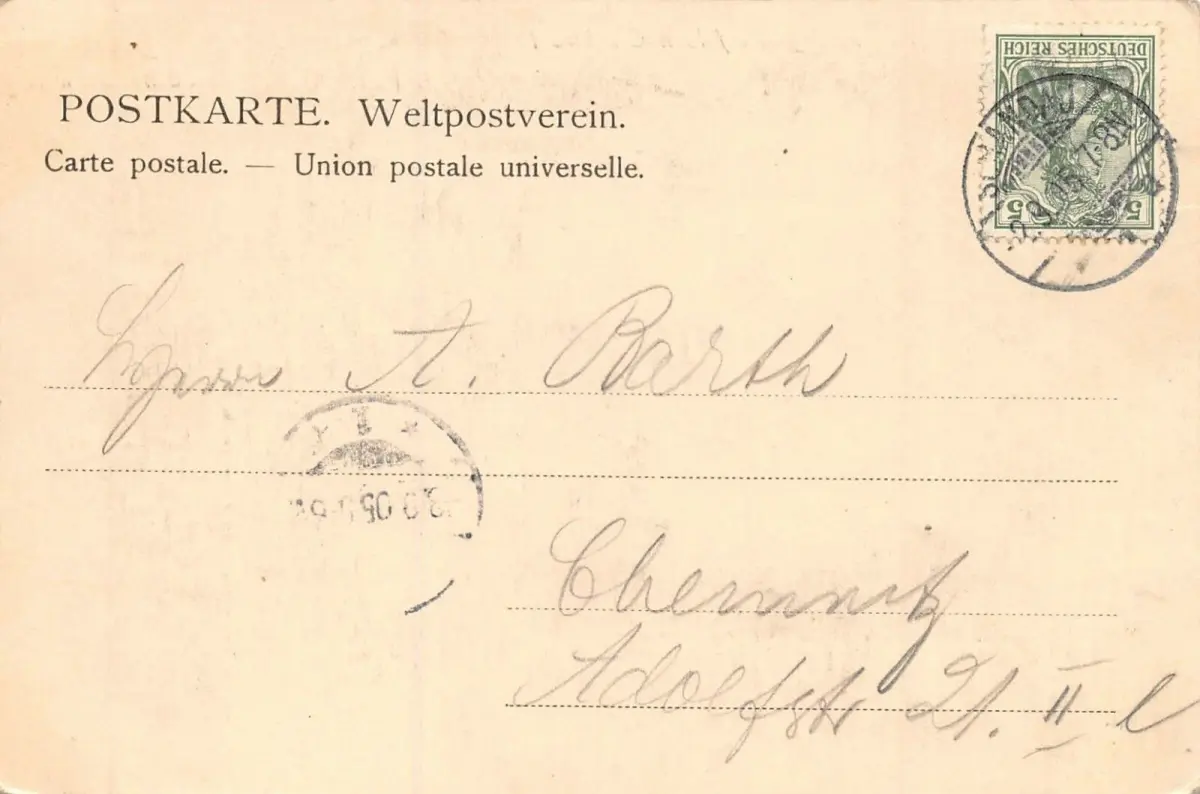 POSTKARTE. Weltpostverein.
Carte postale. — Union postale universelle.
DEUTSCHES REICH
5 5
SCHANDAU
2.9.05. 7-8N
Herrn A. Barth
1
05
Chemnitz
Adolfstr 21. II l